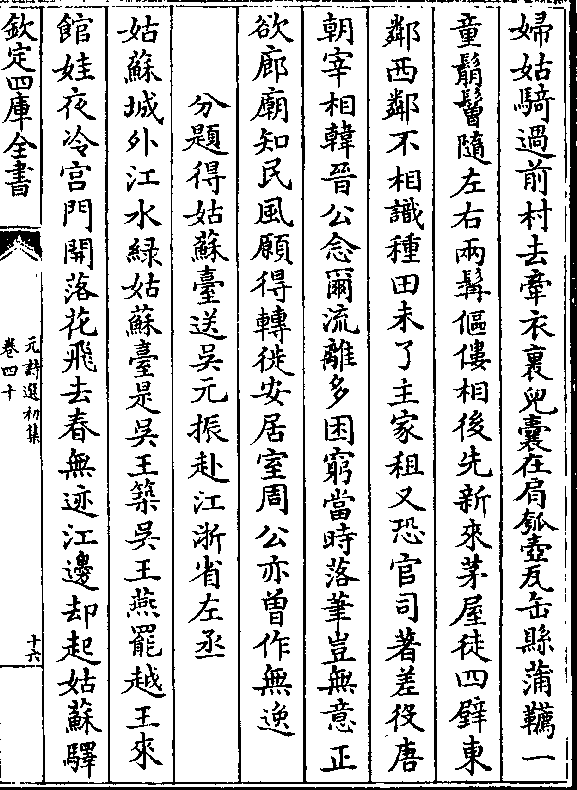 婦姑騎過前村去牽衣裹兒囊在肩瓠壺瓦缶縣蒲韉一
童鬅鬙隨左右兩髯傴僂相後先新來茅屋徒四壁東
鄰西鄰不相識種田未了主家租又恐官司著差役唐
朝宰相韓晉公念爾流離多困窮當時落筆豈無意正
欲廊廟知民風願得轉徙安居室周公亦曾作無逸
分題得姑蘇臺送吳元振赴江浙省左丞
姑蘇城外江水綠姑蘇臺是吳王築吳王燕罷越王來
館娃夜冷宮門開落花飛去春無迹江邊却起姑蘇驛
欽定四庫全書
元詩選初集
卷四十
十六